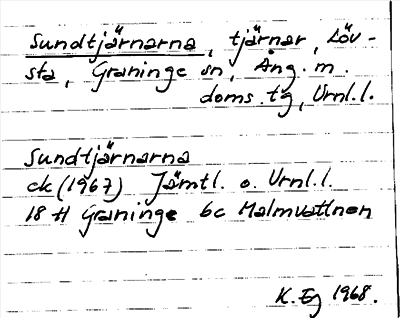 Sundtjärnarna, tjärnar, Löv-
sta, Graninge sn, Ång. m.
doms. tg, Vrnl. l.
Sundtjärnarna
ck (1967) Jämtl. o. Vrnl. l.
18 H Graninge 6c Malmvattnen
K. Eg 1968.